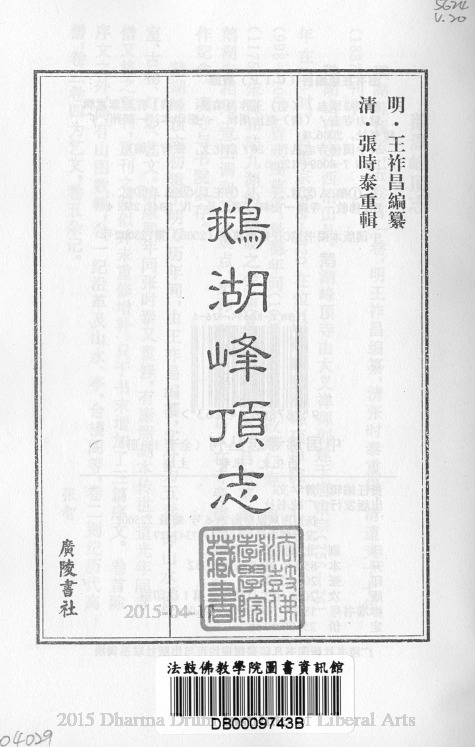 5624
V.20
明·王祚昌編纂
清·張時泰重輯
鵝湖峰頂志
廣陵書社
法鼓佛教學院藏書
2015-04-1
法鼓佛教學院圖書資訊館
DB0009743B
2015 Dharma Drum of Liberal Arts
04029